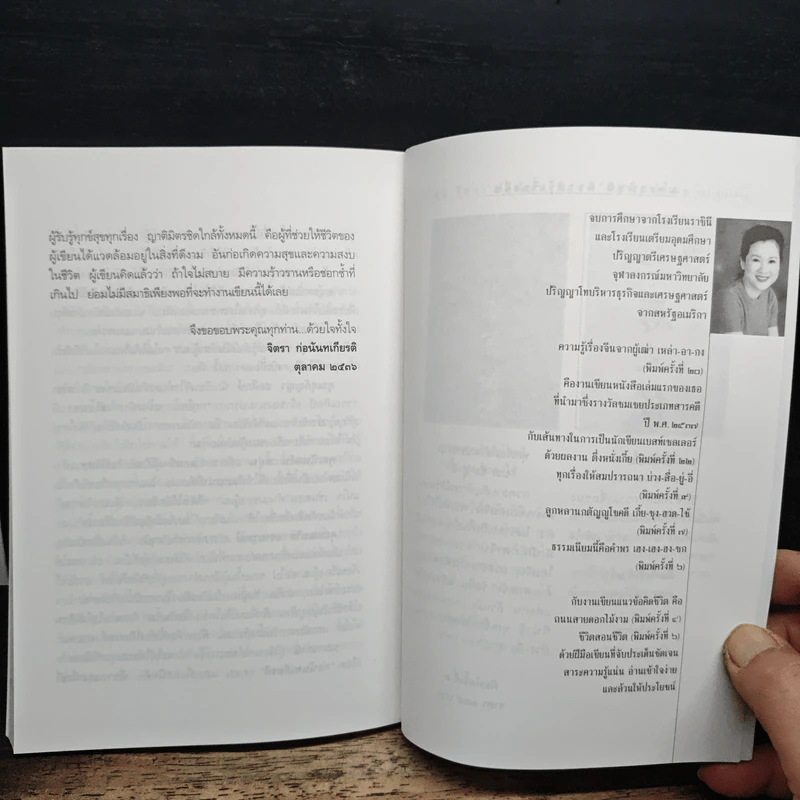 ผู้รับรู้ทุกข์สุขทุกเรื่อง ญาติมิตรชิดใกล้ทั้งหมดนี้ คือผู้ที่ช่วยให้ชีวิตของ
ผู้เขียนได้แวดล้อมอยู่ในสิ่งที่ดีงาม อันก่อเกิดความสุขและความสงบ
ในชีวิต ผู้เขียนคิดแล้วว่า ถ้าใจไม่สบาย มีความร้าวรานหรือชอกช้ำที่
เกินไป ย่อมไม่มีสมาธิเพียงพอที่จะทำงานเขียนนี้ได้เลย
จึงขอขอบพระคุณทุกท่าน...ด้วยใจทั้งใจ
จิตรา ก่อนันทเกียรติ
ตุลาคม ๒๕๓๖
จบการศึกษาจากโรงเรียนราชินี
และโรงเรียนเตรียมอุดมศึกษา
ปริญญาตรีเศรษฐศาสตร์
จุฬาลงกรณ์มหาวิทยาลัย
ปริญญาโทบริหารธุรกิจและเศรษฐศาสตร์
จากสหรัฐอเมริกา
ความรู้เรื่องจีนจากผู้เฒ่า เหล่า-อา-กง
(พิมพ์ครั้งที่ ๒๐)
คืองานเขียนหนังสือเล่มแรกของเธอ
ที่นำมาซึ่งรางวัลชมเชยประเภทสารคดี
ปี พ.ศ. ๒๕๓๗
กับเส้นทางในการเป็นนักเขียนเบสท์เซลเลอร์
ด้วยผลงาน ตึ่งหนั่งเกี้ย (พิมพ์ครั้งที่ ๒๒)
ทุกเรื่องให้สมปรารถนา บ่วง-สื่อ-ยู่-อี่
(พิมพ์ครั้งที่ ๙)
ลูกหลานกตัญญูโชคดี เกี้ย-ซุง-สวด-ไช้
(พิมพ์ครั้งที่ ๗)
ธรรมเนียมนี้คือคำพร เฮง-เฮง-ฮง-ฮก
(พิมพ์ครั้งที่ ๖)
กับงานเขียนแนวข้อคิดชีวิต คือ
ถนนสายดอกไม้งาม (พิมพ์ครั้งที่ ๔)
ชีวิตสอนชีวิต (พิมพ์ครั้งที่ ๖)
ด้วยฝีมือเขียนที่จับประเด็นชัดเจน
สาระความรู้แน่น อ่านเข้าใจง่าย
และล้วนให้ประโยชน์